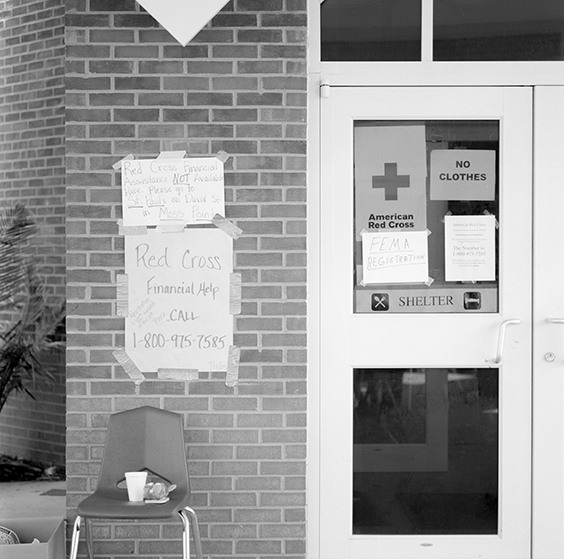 Red Cross Financial
Assistance NOT Available
Here. Please go to
St. Pauls on Dante St.
in Moss Point
Red Cross
Financial Help
CALL
1-800-975-7585
American
Red Cross
NO
CLOTHES
FEMA
REGISTRATION
American Red Cross
The Number is
SHELTER